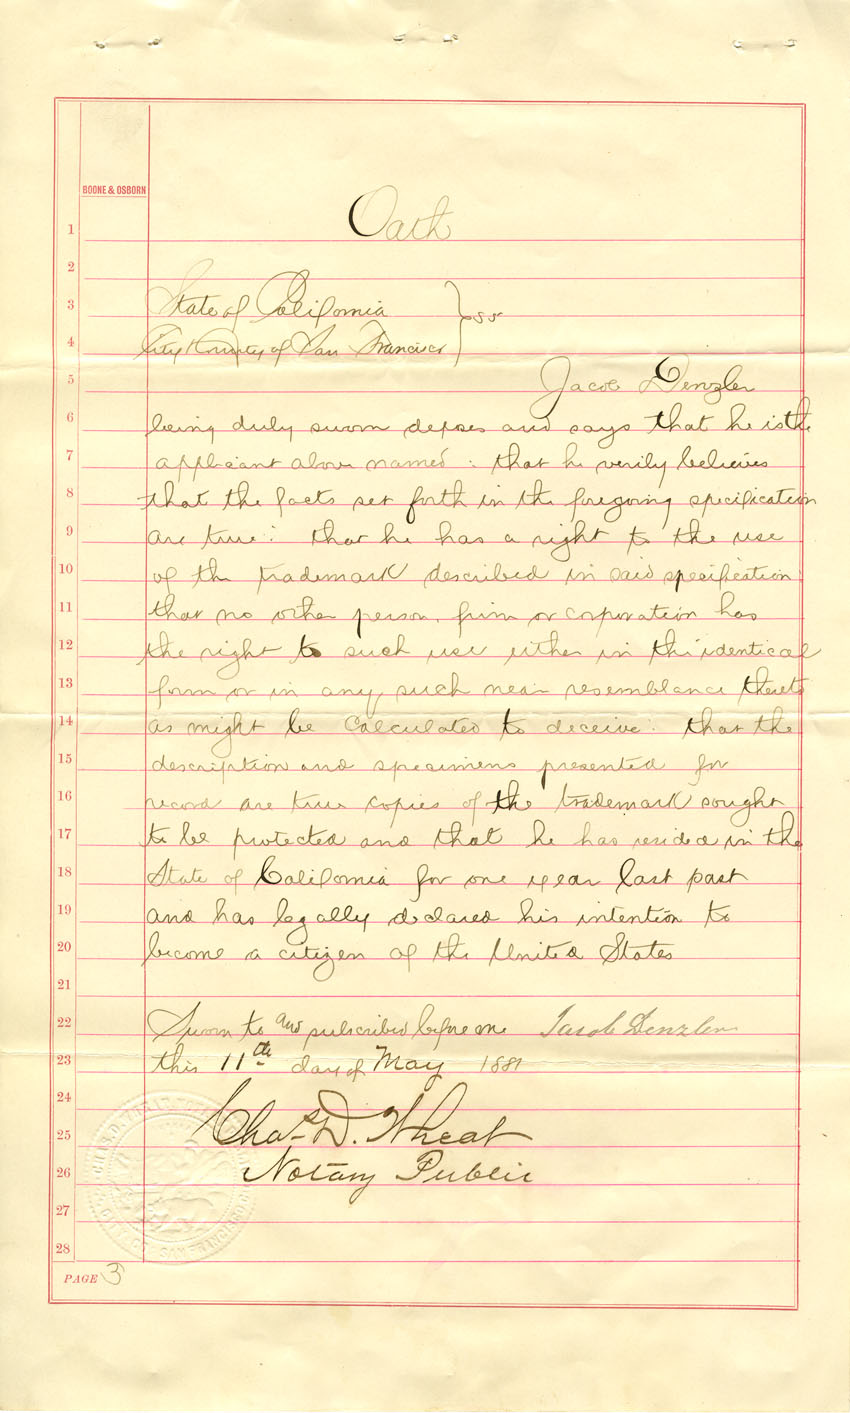 BOONE & OSBORN
1 Oath
2
3 State of California } ss
4 City & County of San Francisco
5 Jacob Denzler
6 being duly sworn deposes and says that he is the
7 applicant above named : that he verily believes
8 that the facts set forth in the foregoing specification
9 are true : that he has a right to the use
10 of the trademark described in said specification
11 that no other person, firm or corporation has
12 the right to such use either in the identical
13 form or in any such near resemblance thereto
14 as might be calculated to deceive : that the
15 description and specimens presented for
16 record are true copies of the trademark sought
17 to be protected and that he has resided in the
18 State of California for one year last past
19 and has legally declared his intention to
20 become a citizen of the United States
21
22 Sworn to and subscribed before me Jacob Denzler
23 this 11th day of May 1881
24
25 Chas. D. Wheat
26 Notary Public
27
28
CITY OF SAN FRANCISCO
PAGE 3